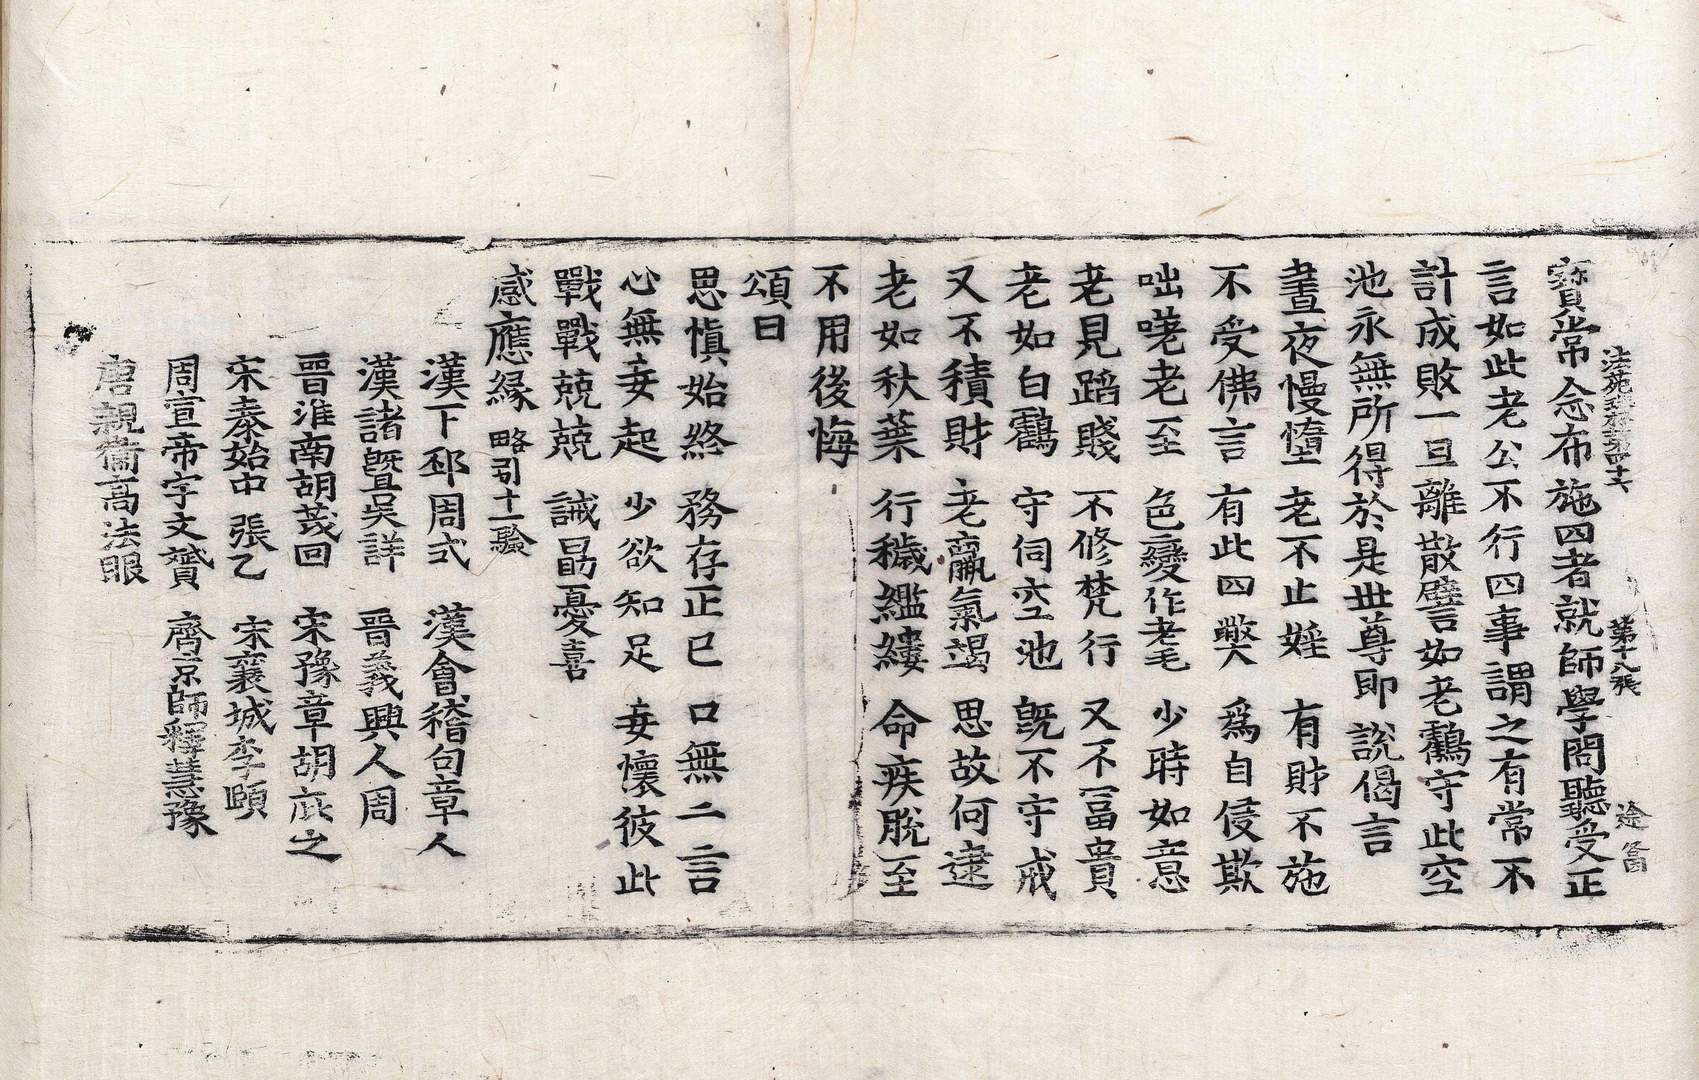 法苑珠林第四十六 第十八張 途
寶常念布施四者就師學問聽受正
言如此老公不行四事謂之有常不
計成敗一旦離散譬如老鸖守此空
池永無所得於是世尊即說偈言
晝夜慢墯 老不止婬 有財不施
不受佛言 有此四獘 爲自侵欺
咄嗟老至 色變作耄 少時如意
老見蹈賤 不修梵行 又不富貴
老如白鸖 守伺空池 旣不守戒
又不積財 老羸氣竭 思故何逮
老如秋葉 行穢繿縷 命疾脫至
不用後悔
頌曰
思愼始終 務存正已 口無二言
心無妄起 少欲知足 妄懷彼此
戰戰兢兢 誡勗憂喜
感應緣 略引十一驗
漢下邳周式 漢會稽句章人
漢諸曁吳詳 晉義興人周
晉淮南胡茂回 宋豫章胡庇之
宋泰始中張乙 宋襄城李頤
周宣帝宇文贇 齊京師釋慧豫
唐親衛高法眼